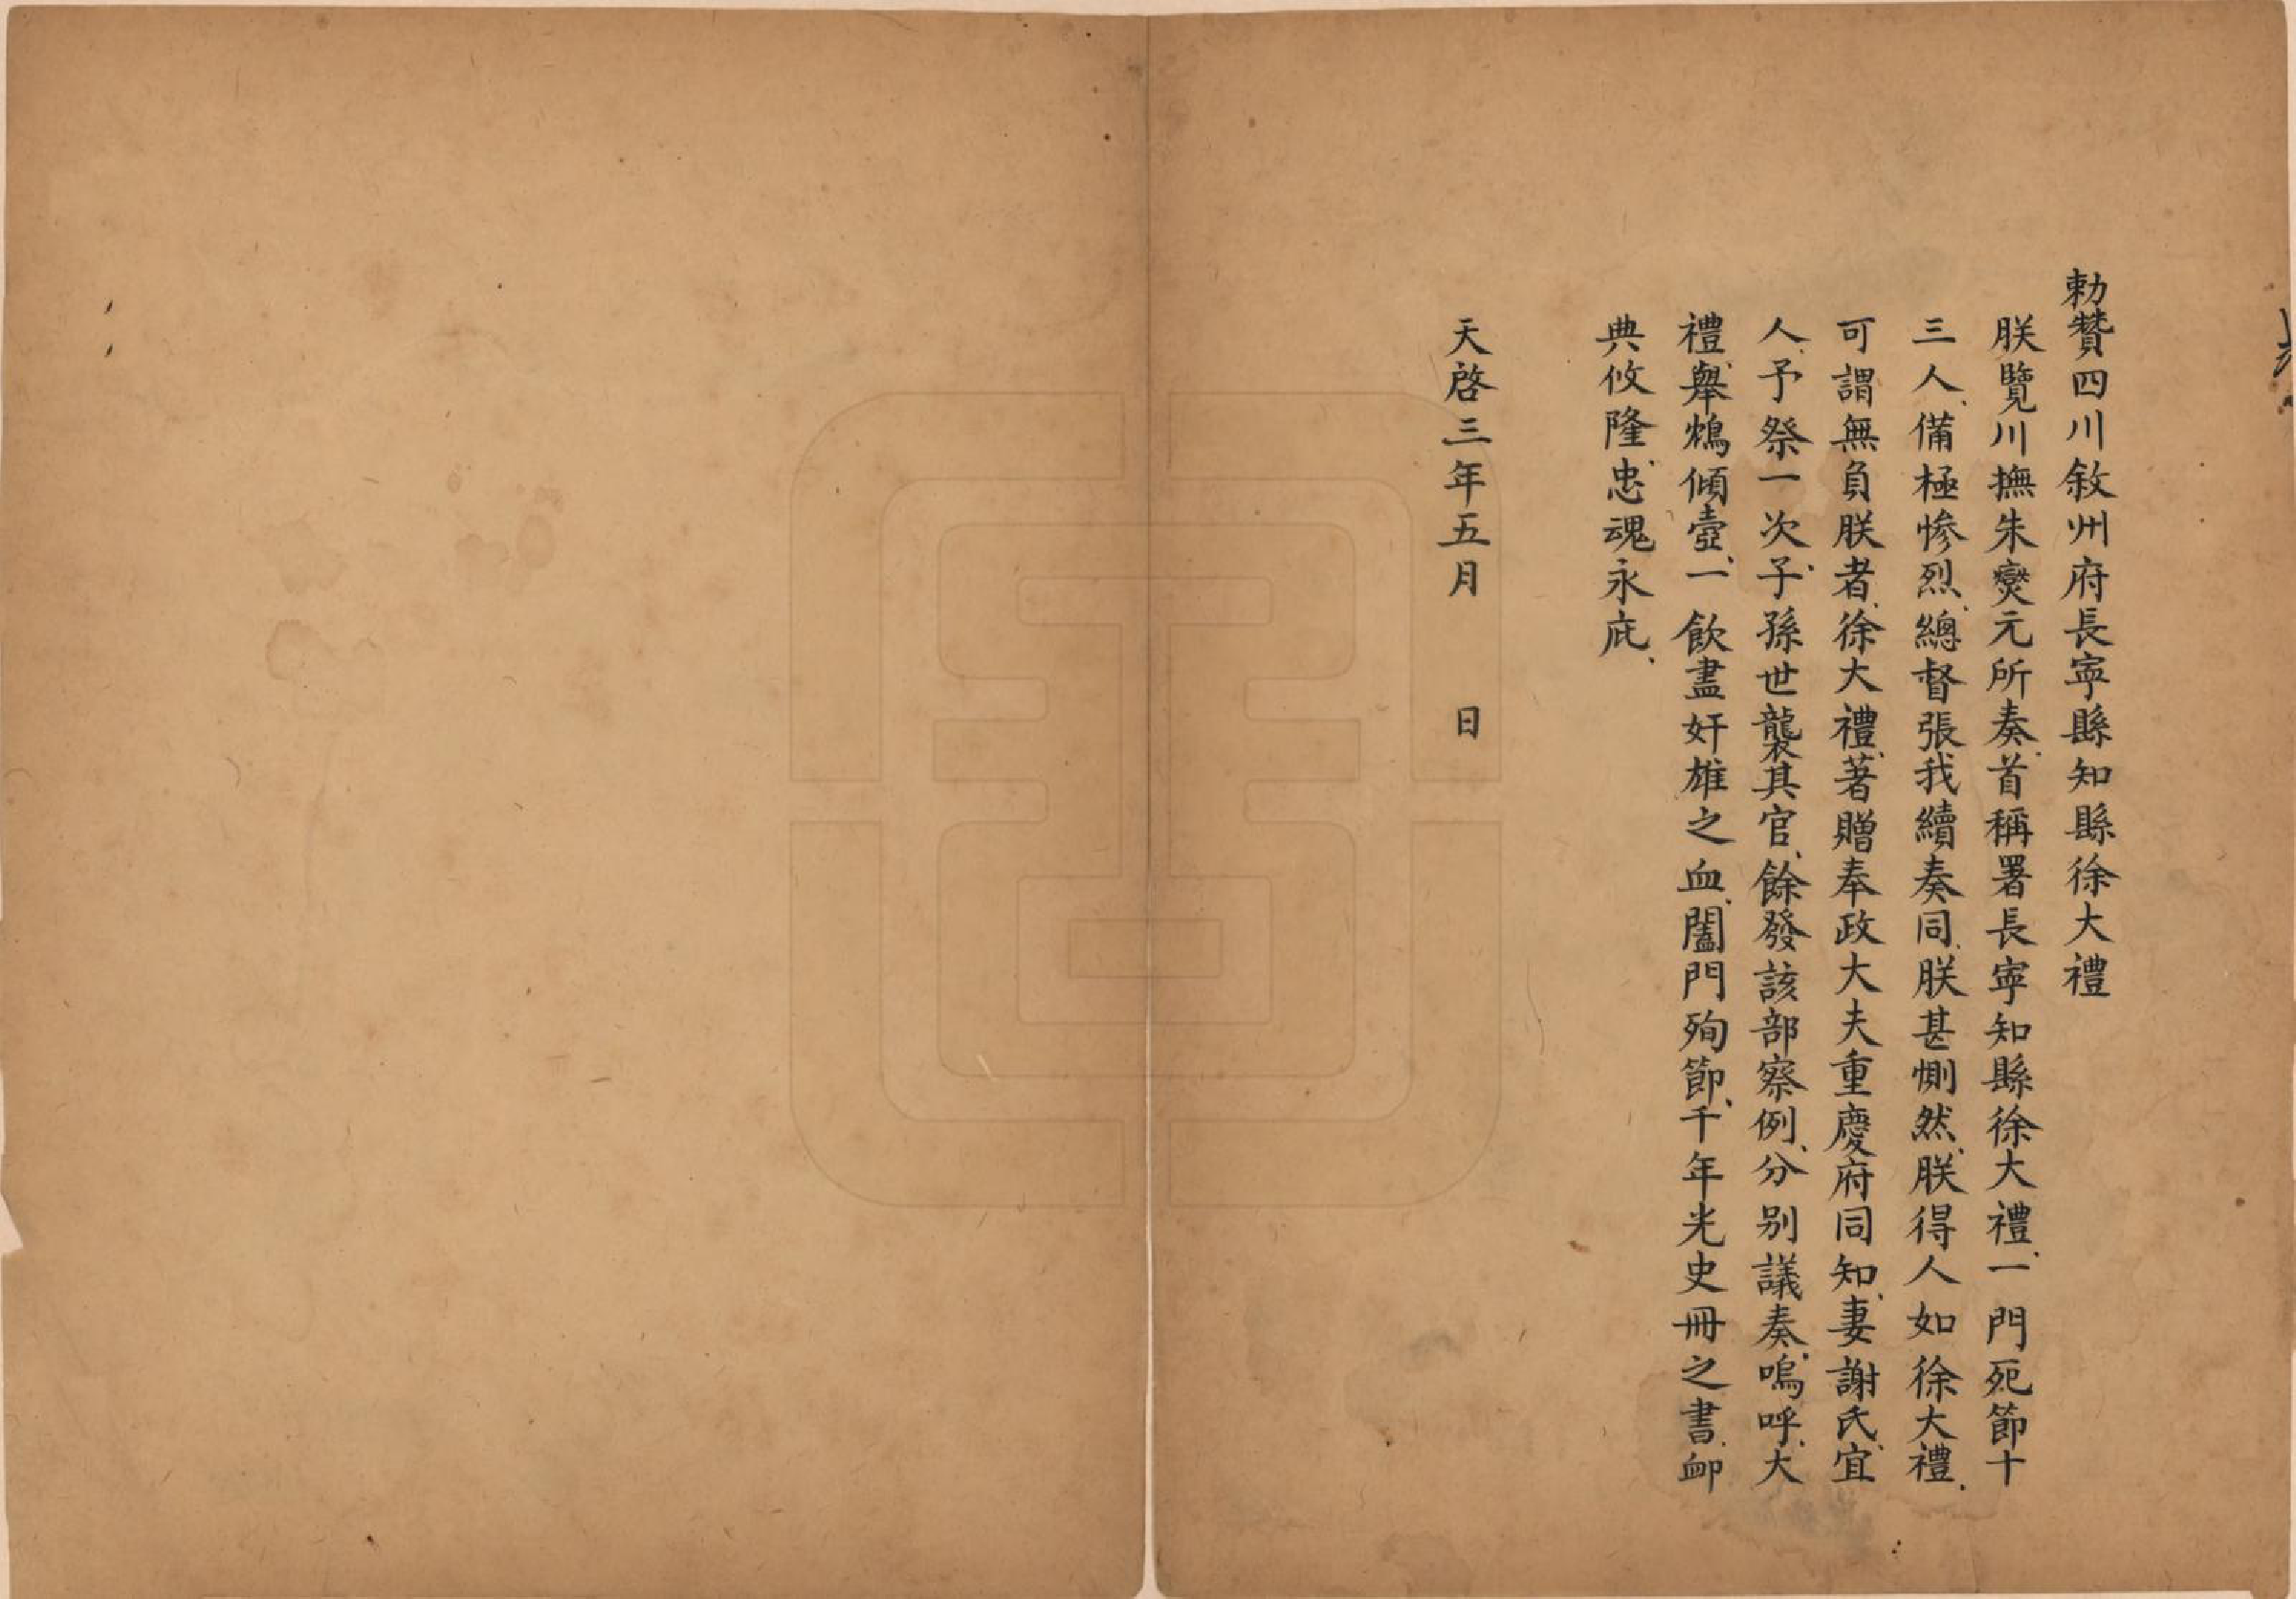 勅贊四川敘州府長寧縣知縣徐大禮
朕覽川撫朱燮元所奏、首稱署長寧知縣徐大禮、一門死節十
三人、備極慘烈、總督張我續奏同、朕甚惻然、朕得人如徐大禮、
可謂無負朕者、徐大禮、著贈奉政大夫重慶府同知、妻謝氏、宜
人、予祭一次、子孫世襲其官、餘發該部察例、分別議奏、嗚呼、大
禮、舉鴆傾壺、一飲盡奸雄之血、闔門殉節、千年光史冊之書、卹
典攸隆、忠魂永庇、
天啓三年五月　　日